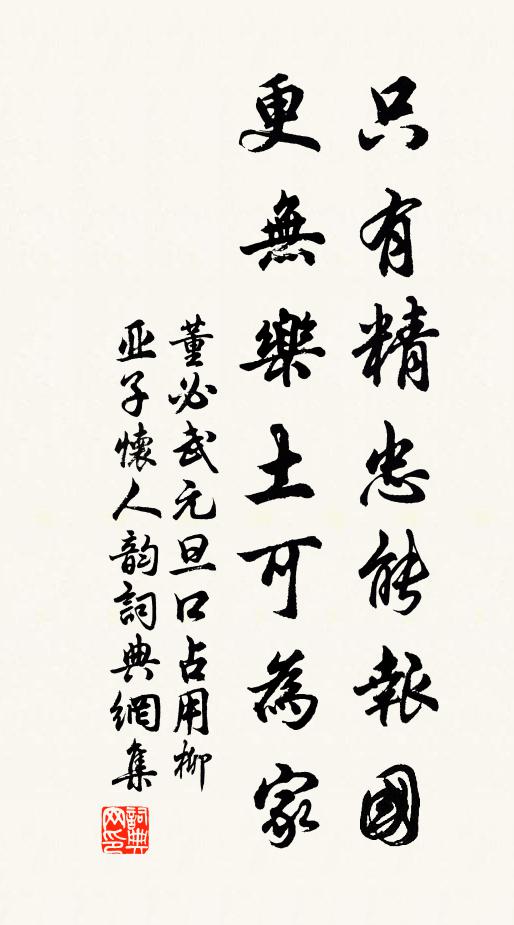 只有精忠能報國
更無樂土可為家
董必武元旦口占用柳
亚子懷人韵詞典網集
詞典网印